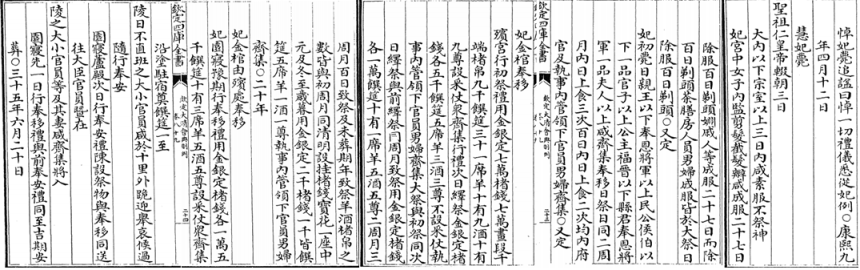 悼妃追謚曰悼一切禮儀悉從妃例○康熙九
年四月十二日
慧妃薨
聖祖仁皇帝輟朝三日
大内以下宗室以上三日内咸素服不祭神
妃宮中女子内監剪髮截髮辮咸成服二十七日
除服百日剃頭姻戚人等成服二十七日而除
百日剃頭茶膳房人員男婦成服皆於大祭日
除服百日剃頭○又定
妃初薨日親王以下奉恩將軍以上民公侯伯以
下一品官子以上公主福晉以下縣君奉恩將
軍一品夫人以上咸齊集奉移日祭日同二周
月内日上食三次百日内日上食二次均内府
官及執事内管領下官員男婦齊集○又定
欽定四庫全書
欽定大清會典則例
卷八十九
二十三
妃金棺奉移
殯宮行初祭禮用金銀定七萬楮錢七萬畫段千
端楮帛九千饌筵三十一席羊十有九酒十有
九尊設采仗衆齊集行禮次日繹祭金銀定楮
錢各五千饌筵五席羊三酒三尊不設采仗執
事内管領下官員男婦齊集大祭與初祭同次
日繹祭與前繹祭同周月致祭用金銀定楮錢
各一萬饌筵十有一席羊五酒五尊二周月三
周月百日致祭及未葬期年致祭羊酒楮帛之
數皆與初周月同清明設挂楮錢寶花一座中
元及冬至歲暮用金銀定二千楮錢一千皆饌
筵五席羊一酒一尊執事内管領下官員男婦
齊集○二十年
妃金棺由殯處奉移
妃園寢豫期行奉移禮用金銀定楮錢各一萬五
千饌筵十有三席羊五酒五尊設采仗衆齊集
欽定四庫全書
欽定大清會典則例
卷八十九
二十四
沿塗駐宿奠饌筵一至
陵日不直班之大小官員咸於十里外跪迎舉哀候過
隨行奉安
園寢廬殿次日行奉安禮陳設祭物與奉移同送
往大臣官員暨在
陵之大小官員等及其妻咸齊集將入
園寢先一日行奉移禮與前奉安禮同至吉期安
葬○三十五年六月二十日